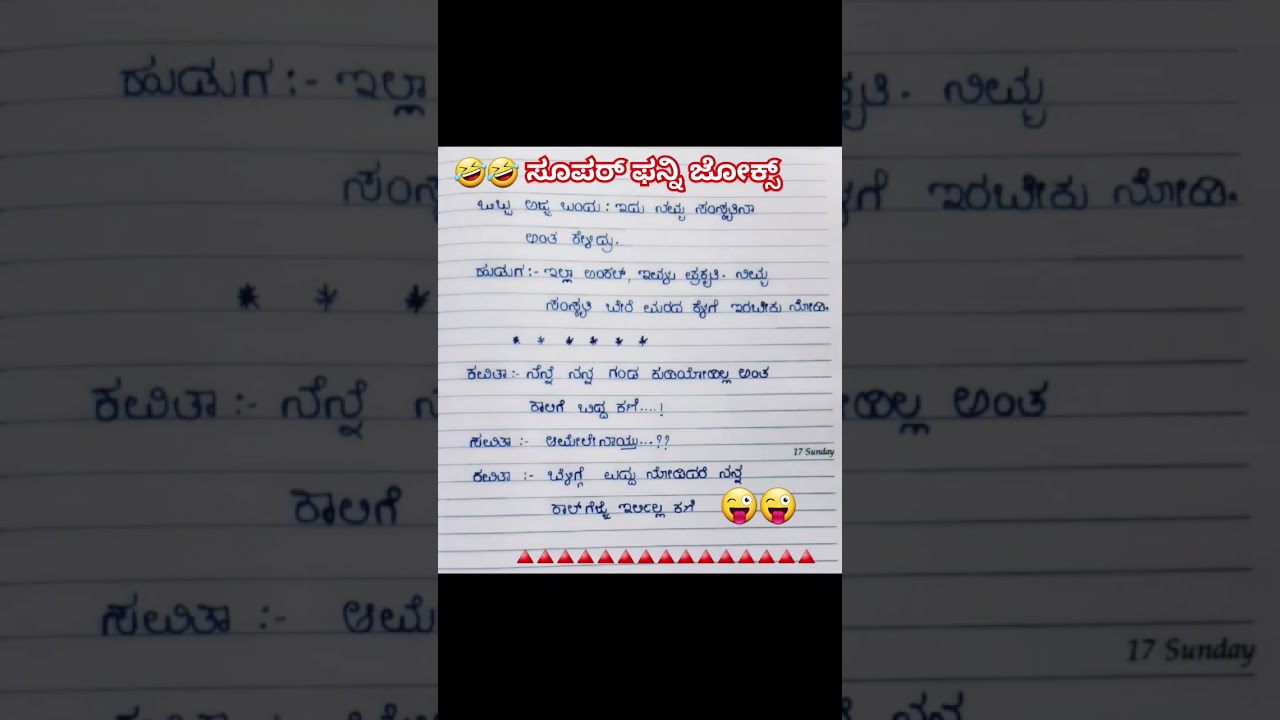 🤣🤣 ಸೂಪರ್ ಫನ್ನಿ ಜೋಕ್ಸ್
ಒಬ್ಬ ಅಜ್ಜ ಬಂದು : ಇದು ನಮ್ಮ ಸಂಸ್ಕೃತಿನಾ
ಅಂತ ಕೇಳಿದ್ರು.
ಹುಡುಗ :- ಇಲ್ಲಾ ಅಂಕಲ್, ಇವ್ಳು ಪ್ರಕೃತಿ. ನಿಮ್ಮ
ಸಂಸ್ಕೃತಿ ಬೇರೆ ಮರದ ಕೆಳಗೆ ಇರಬೇಕು ನೋಡಿ.
* * * * * *
ಕವಿತಾ :- ನೆನ್ನೆ ನನ್ನ ಗಂಡ ಕುಡಿಯೋದಿಲ್ಲ ಅಂತ
ಕಾಲಿಗೆ ಬಿದ್ದ ಕಣೆ....!
ಸವಿತಾ :- ಆಮೇಲೇನಾಯ್ತು...??
17 Sunday
ಕವಿತಾ :- ಬೆಳಿಗ್ಗೆ ಎದ್ದು ನೋಡಿದರೆ ನನ್ನ
ಕಾಲ್ಗೆಜ್ಜೆ ಇರ್ಲಿಲ್ಲ ಕಣೆ 😜😜